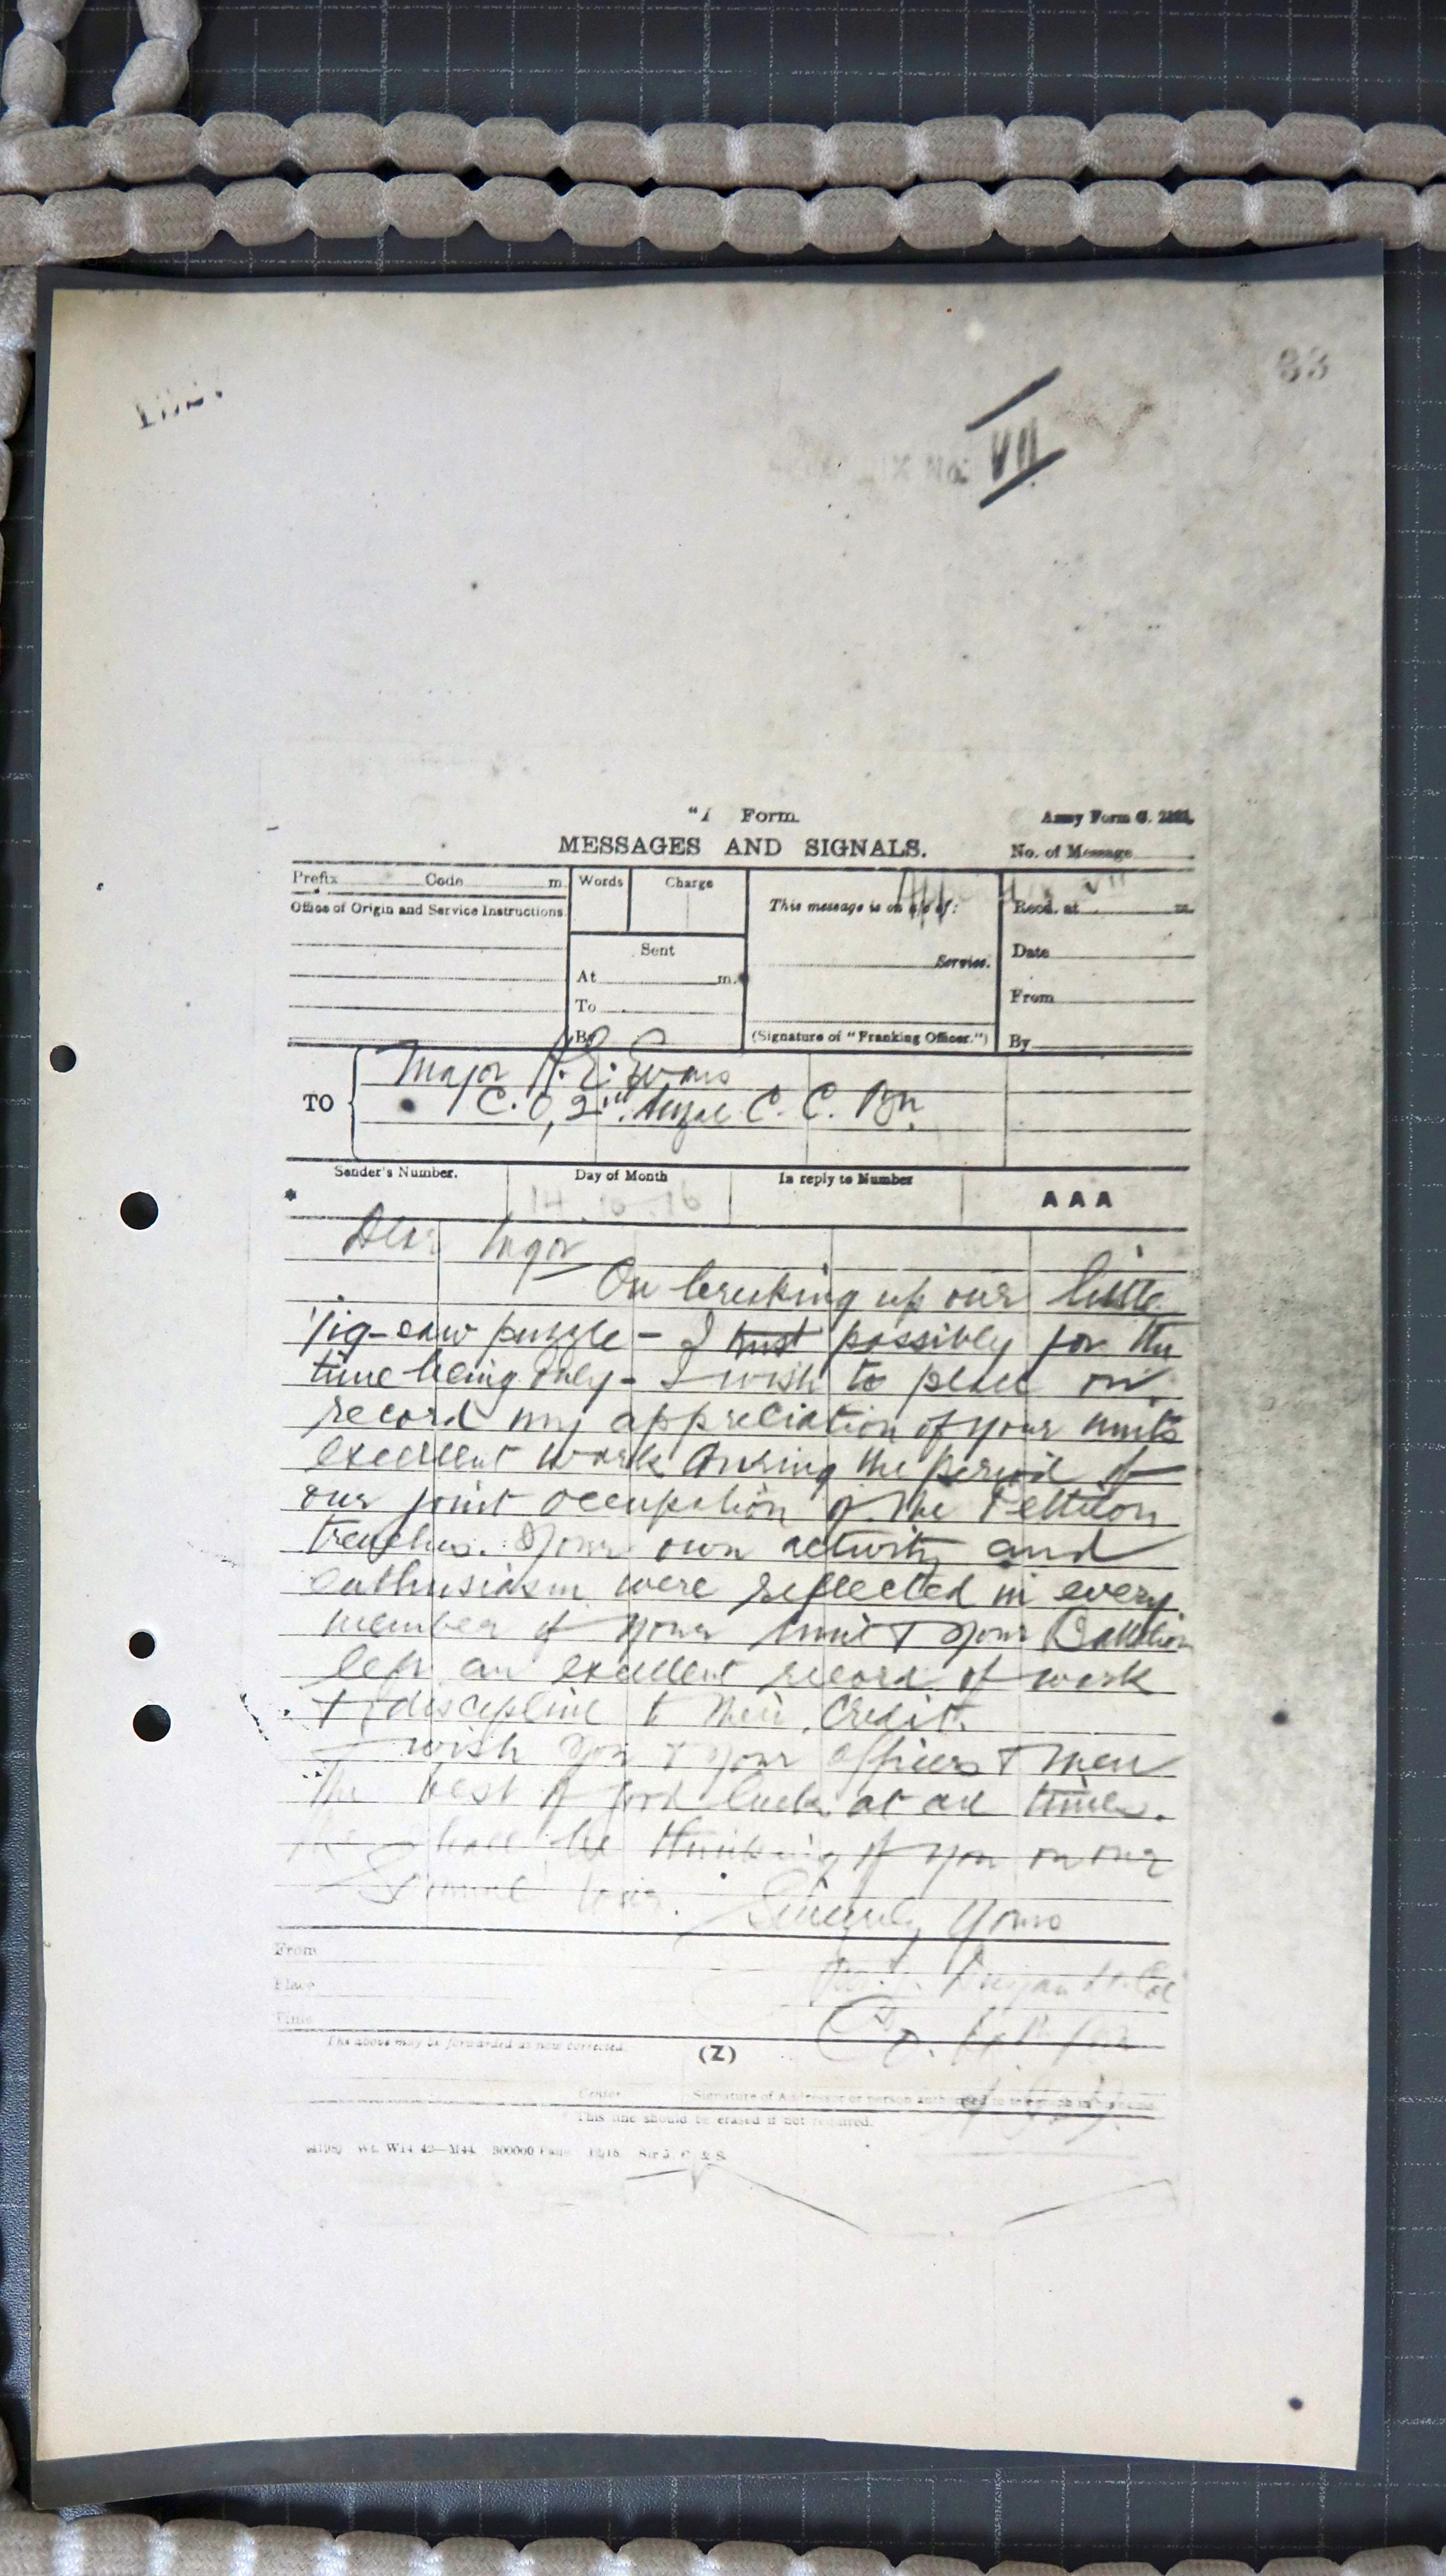 33
No. VII
Form
Army Form C.
MESSAGES AND SIGNALS.
No. of Message
Prefix Code m.
Words
Charge
This message is on a/c of:
VII
Recd. at m.
Office of Origin and Service Instructions.
Sent
Service.
Date
At m.
To
From
By
(Signature of "Franking Officer.")
By
TO
Major A. E. Evans
C.O, 2nd Anzac C. C. Bn.
Sender's Number.
Day of Month
In reply to Number
AAA
*
14.10.16
Dear Major
On breaking up our little
jig-saw puzzle - I trust possibly for the
time being only - I wish to place on
record my appreciation of your units
excellent work during the period of
our joint occupation of the
trenches. Your own activity and
enthusiasm were reflected in every
member of your unit & your Battalion
left an excellent record of work
& discipline to their credit.
I wish you & your officers & men
the best of good luck at all times.
We shall be thinking of you on our
Sincerely Yours
From
Place
Time
The above may be forwarded as now corrected.
(Z)
Censor.
Signature of Addressor or person authorised to telegraph in his name.
This line should be erased if not required.